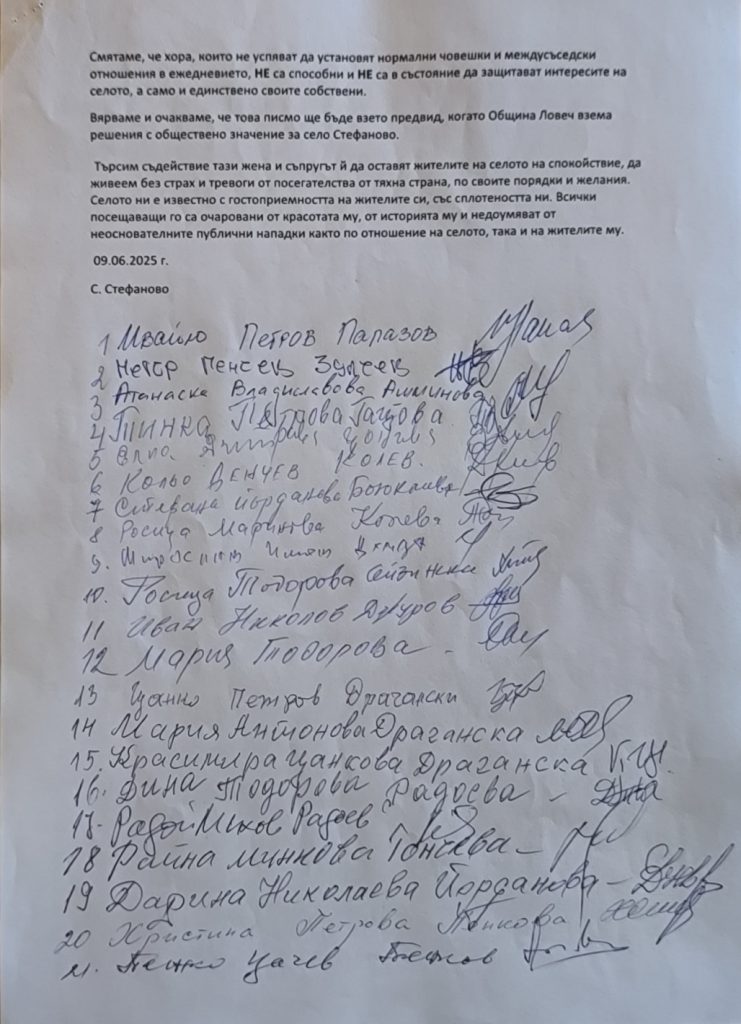 Смятаме, че хора, които не успяват да установят нормални човешки и междусъседски
отношения в ежедневието, НЕ са способни и НЕ са в състояние да защитават интересите на
селото, а само и единствено своите собствени.
Вярваме и очакваме, че това писмо ще бъде взето предвид, когато Община Ловеч взема
решения с обществено значение за село Стефаново.
Търсим съдействие тази жена и съпругът й да оставят жителите на селото на спокойствие, да
живеем без страх и тревоги от посегателства от тяхна страна, по своите порядки и желания.
Селото ни е известно с гостоприемността на жителите си, със сплотеността ни. Всички
посещаващи го са очаровани от красотата му, от историята му и недоумяват от
неоснователните публични нападки както по отношение на селото, така и на жителите му.
09.06.2025 г.
С. Стефаново
1 Ивайло Петров Папазов
2 Пенчев
3 Атанаска Владиславова
4 Тинка Петрова
5
6 Кольо Венчев Колев.
7 Йорданова
8 Росица Маринова Колева
9.
10. Росица Тодорова
11 Иван Николов Джуров
12 Мария Тодорова -
13 Цанко Петров Драгански
14 Мария Антонова Драганска
15. Красимира Цанкова Драганска
16. Дина Тодорова Радоева -
17. Радой Радоев
18 Райна Минкова Гончева -
19 Дарина Николаева Йорданова -
20 Христина Петрова Пенкова
21. Пенко Цачев